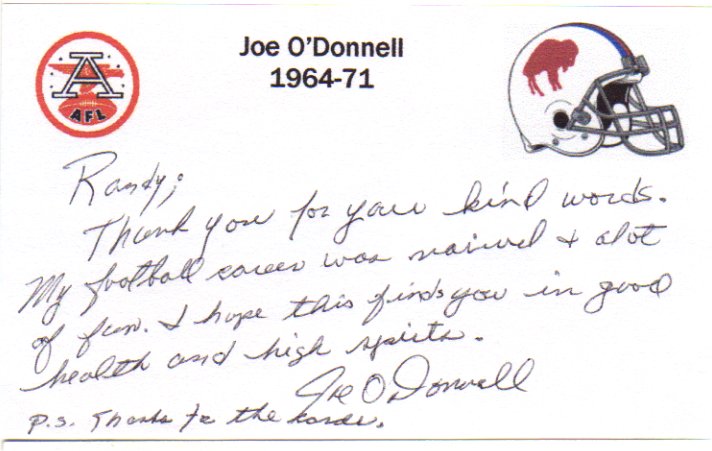 Joe O'Donnell
1964-71
A
AFL
Randy;
Thank you for your kind words.
My football career was varied & alot
of fun. I hope this finds you in good
health and high spirits.
Joe O'Donnell
P.S. Thanks for the cards.